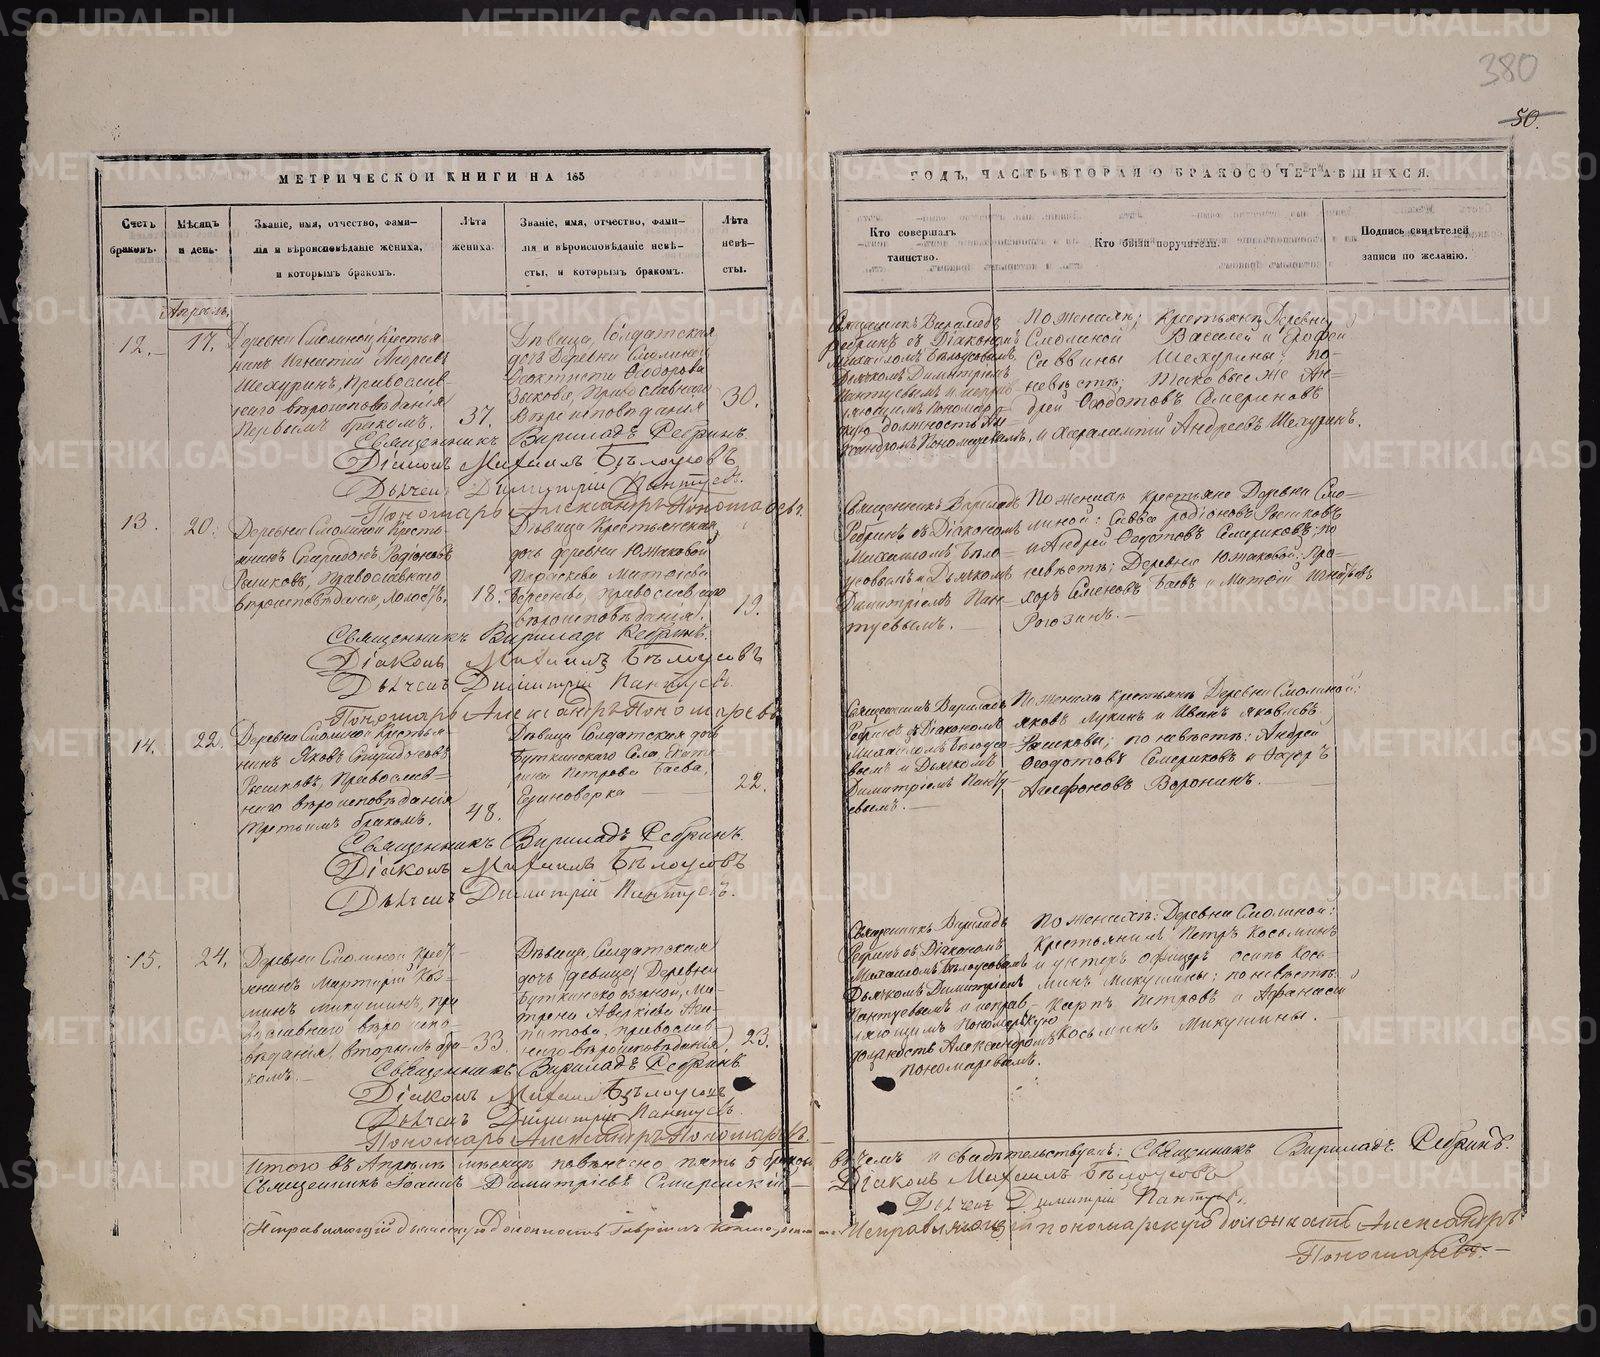 380
50.
МЕТРИЧЕСКОЙ КНИГИ НА 185
ГОДЪ, ЧАСТЬ ВТОРАЯ О БРАКОСОЧЕТАВШИХСЯ.
Счетъ браковъ.
Мѣсяцъ и день.
Званіе, имя, отчество, фами-
лія и вѣроисповѣданіе жениха,
и которымъ бракомъ.
Лѣта жениха.
Званіе, имя, отчество, фами-
лія и вѣроисповѣданіе невѣ-
сты, и которымъ бракомъ.
Лѣта невѣ-
сты.
Кто совершалъ
таинство.
Кто были поручители.
Подпись свидѣтелей
записи по желанію.
Апрѣль
12.
17.
Деревни Смолиной Кресть-
янинъ Игнатій Андреевъ
Шехуринъ, Православ-
наго вѣроисповѣданія
первымъ бракомъ.
37.
Дѣвица, Солдатская
дочь Деревни Смолиной
Феоктиста Феодорова
Зыкова, Православнаго
Вѣроисповѣданія
30.
Священникъ Вириладъ
Ребринъ съ Діакономъ
Михаиломъ Бѣлоусовымъ,
Дьячкомъ Димитріемъ
Пантуевымъ и исправ-
ляющимъ Пономар-
скую должность Але-
ксандромъ Пономаревымъ.
По женихѣ; Крестьяне Деревни
Смолиной Василей и Ерофей
Саввины Шехурины; по
невѣстѣ; таковые же Ан-
дрей Феодотовъ Семериковъ
и Харалампій Андреевъ Шехуринъ.
Священникъ Вириладъ Ребринъ.
Діаконъ Михаилъ Бѣлоусовъ
Дьячекъ Димитрій Пантуевъ.
Пономарь Александръ Пономаревъ.
13.
20.
Деревни Смолиной Кресть-
янинъ Спиридонъ Родіоновъ
Рѣшковъ, Православнаго
вѣроисповѣданія, холостъ.
18.
Дѣвица Крестьянская
дочь деревни Южаковой
Параскева Матфіева
православнаго
вѣроисповѣданія.
19.
Священникъ Вириладъ
Ребринъ съ Діакономъ
Михаиломъ Бѣло-
усовымъ и Дьячкомъ
Димитріемъ Пан-
туевымъ.
По женихѣ крестьяне Деревни Смо-
линой: Савва Родіоновъ Рѣшковъ
и Андрей Федотовъ Семериковъ; по
невѣстѣ; Деревни Южаковой: Про-
хоръ Семеновъ Баевъ и Матфій Игнатьевъ
Рогозинъ.
Священникъ Вириладъ Ребринъ.
Діаконъ Михаилъ Бѣлоусовъ
Дьячекъ Димитрій Пантуевъ.
Пономарь Александръ Пономаревъ
14.
22.
Деревни Смолиной Кресть-
янинъ Яковъ Спиридоновъ
Рѣшковъ, Православ-
наго вѣроисповѣданія
третьимъ бракомъ.
48.
Дѣвица Солдатская дочь
Буткинскаго Села, Екате-
рина Петрова Баева,
Единоверка
22.
Священникъ Вириладъ
Ребринъ съ Діакономъ
Михаиломъ Бѣлоусо-
вымъ и Дьячкомъ
Димитріемъ Панту-
евымъ.
По женихѣ Крестьяне Деревни Смолиной:
Яковъ Лукинъ и Иванъ Яковлевъ
Рѣшковы; по невѣстѣ: Андрей
Феодотовъ Семериковъ и
Агафоновъ Воронинъ.
Священникъ Вириладъ Ребринъ.
Діаконъ Михаилъ Бѣлоусовъ
Дьячекъ Димитрій Пантуевъ.
15.
24.
Деревни Смолиной Крестья-
нинъ Мартирій Коз-
минъ Микушинъ, пра-
вославнаго вѣроиспо-
вѣданія, вторымъ бра-
комъ.
33.
Дѣвица, Солдатская
дочь (девица) Деревни
Буткинско озерной, Ма-
трона Аверкіева
православ-
наго вѣроисповѣданія
23.
Священникъ Вириладъ
Ребринъ съ Діакономъ
Михаиломъ Бѣлоусовымъ
Дьячкомъ Димитріемъ
Пантуевымъ и исправ-
ляющимъ Пономарскую
должность Александромъ
Пономаревымъ.
По женихѣ: Деревни Смолиной:
Крестьянинъ Петръ Косьминъ
и унтеръ офицеръ Осипъ Кось-
минъ Микушины; по невѣстѣ
Карпъ Петровъ и Афанасій
Косьминъ Микушины.
Священникъ Вириладъ Ребринъ.
Діаконъ Михаилъ Бѣлоусовъ
Дьячекъ Димитрій Пантуевъ.
Пономарь Александръ Пономаревъ.
Итого въ Апрѣлѣ мѣсяцѣ повѣнчено пять 5 браковъ
въ чемъ и свидѣтельствуемъ: Священникъ Вириладъ Ребринъ.
Священникъ Іоаннъ Димитріевъ Смаренскій
Діаконъ Михаилъ Бѣлоусовъ
Дьячекъ Димитрій Пантуевъ.
Исправляющій дьяческую должность Гавріилъ
Исправляющій пономарскую должность Александръ
Пономаревъ.
METRIKI.GASO-URAL.RU